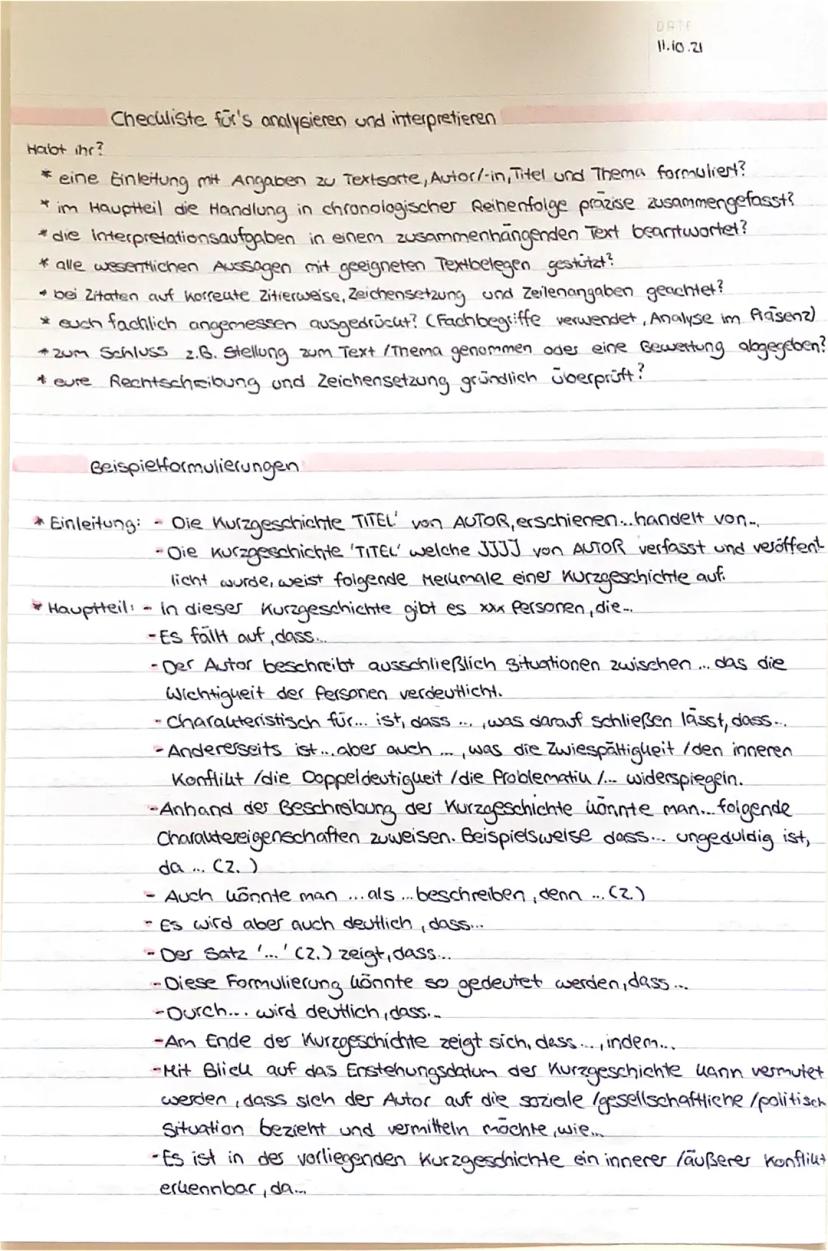 DATE
11.10.21
Checkliste für's analysieren und interpretieren
Habt ihr?
* eine Einleitung mit Angaben zu Textsorte, Autor/-in, Titel und Thema formuliert?
* im Hauptteil die Handlung in chronologischer Reihenfolge präzise zusammengefasst?
* die Interpretationsaufgaben in einem zusammenhängenden Text beantwortet?
* alle wesentlichen Aussagen mit geeigneten Textbelegen gestützt?
* bei Zitaten auf korrekte Zitierweise, Zeichensetzung und Zeilenangaben geachtet?
* euch fachlich angemessen ausgedrückt? (Fachbegriffe verwendet, Analyse im Präsenz)
* zum Schluss z.B. Stellung zum Text / Thema genommen oder eine Bewertung abgegeben?
* eure Rechtschreibung und Zeichensetzung gründlich überprüft?
Beispielformulierungen
* Einleitung: - Die Kurzgeschichte TITEL' von AUTOR, erschienen... handelt von...
- Die Kurzgeschichte 'TITEL' welche JJJJ von AUTOR verfasst und veröffent-
licht wurde, weist folgende Merkmale einer Kurzgeschichte auf:
* Hauptteil: - In dieser Kurzgeschichte gibt es xxx Personen, die...
- Es fällt auf, dass...
- Der Autor beschreibt ausschließlich Situationen zwischen ... das die
Wichtigkeit der Personen verdeutlicht.
- Charakteristisch für... ist, dass ..., was darauf schließen lässt, dass...
- Andererseits ist ... aber auch ..., was die Zwiespältigkeit / den inneren
Konflikt / die Doppeldeutigkeit / die Problematik /... widerspiegeln.
- Anhand der Beschreibung der Kurzgeschichte könnte man... folgende
Charaktereigenschaften zuweisen. Beispielsweise dass... ungeduldig ist,
da ... (Z. )
- Auch könnte man ... als ... beschreiben, denn ... (Z.)
- Es wird aber auch deutlich, dass...
- Der Satz '...' (Z.) zeigt, dass...
- Diese Formulierung könnte so gedeutet werden, dass ...
- Durch... wird deutlich, dass...
- Am Ende der Kurzgeschichte zeigt sich, dass ..., indem...
- Mit Blick auf das Enstehungsdatum der Kurzgeschichte kann vermutet
werden, dass sich der Autor auf die soziale / gesellschaftliche / politisch
Situation bezieht und vermitteln möchte, wie...
- Es ist in der vorliegenden Kurzgeschichte ein innerer / äußerer Konflikt
erkennbar, da...